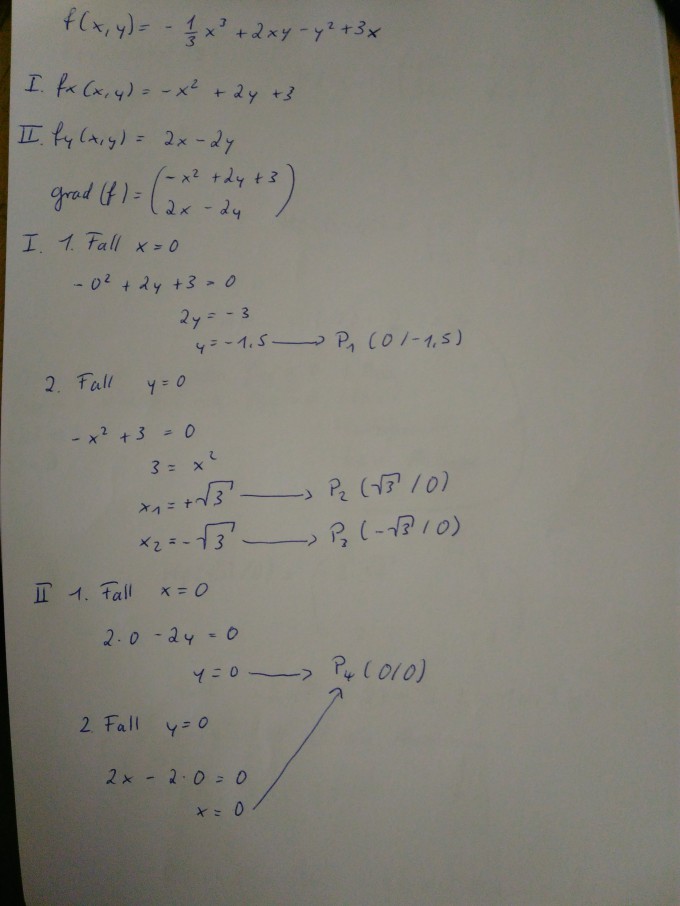 f(x,y) = - 1/3 x³ + 2xy - y² + 3x
I. fx(x,y) = -x² + 2y + 3
II. fy(x,y) = 2x - 2y
grad(f) = (-x² + 2y + 3
2x - 2y)
I. 1. Fall x = 0
-0² + 2y + 3 = 0
2y = -3
y = -1,5 → P₁ (0/-1,5)
2. Fall y = 0
-x² + 3 = 0
3 = x²
x₁ = +√3 → P₂ (√3 / 0)
x₂ = -√3 → P₃ (-√3 / 0)
II 1. Fall x = 0
2·0 - 2y = 0
y = 0 → P₄ (0/0)
2. Fall y = 0
2x - 2·0 = 0
x = 0